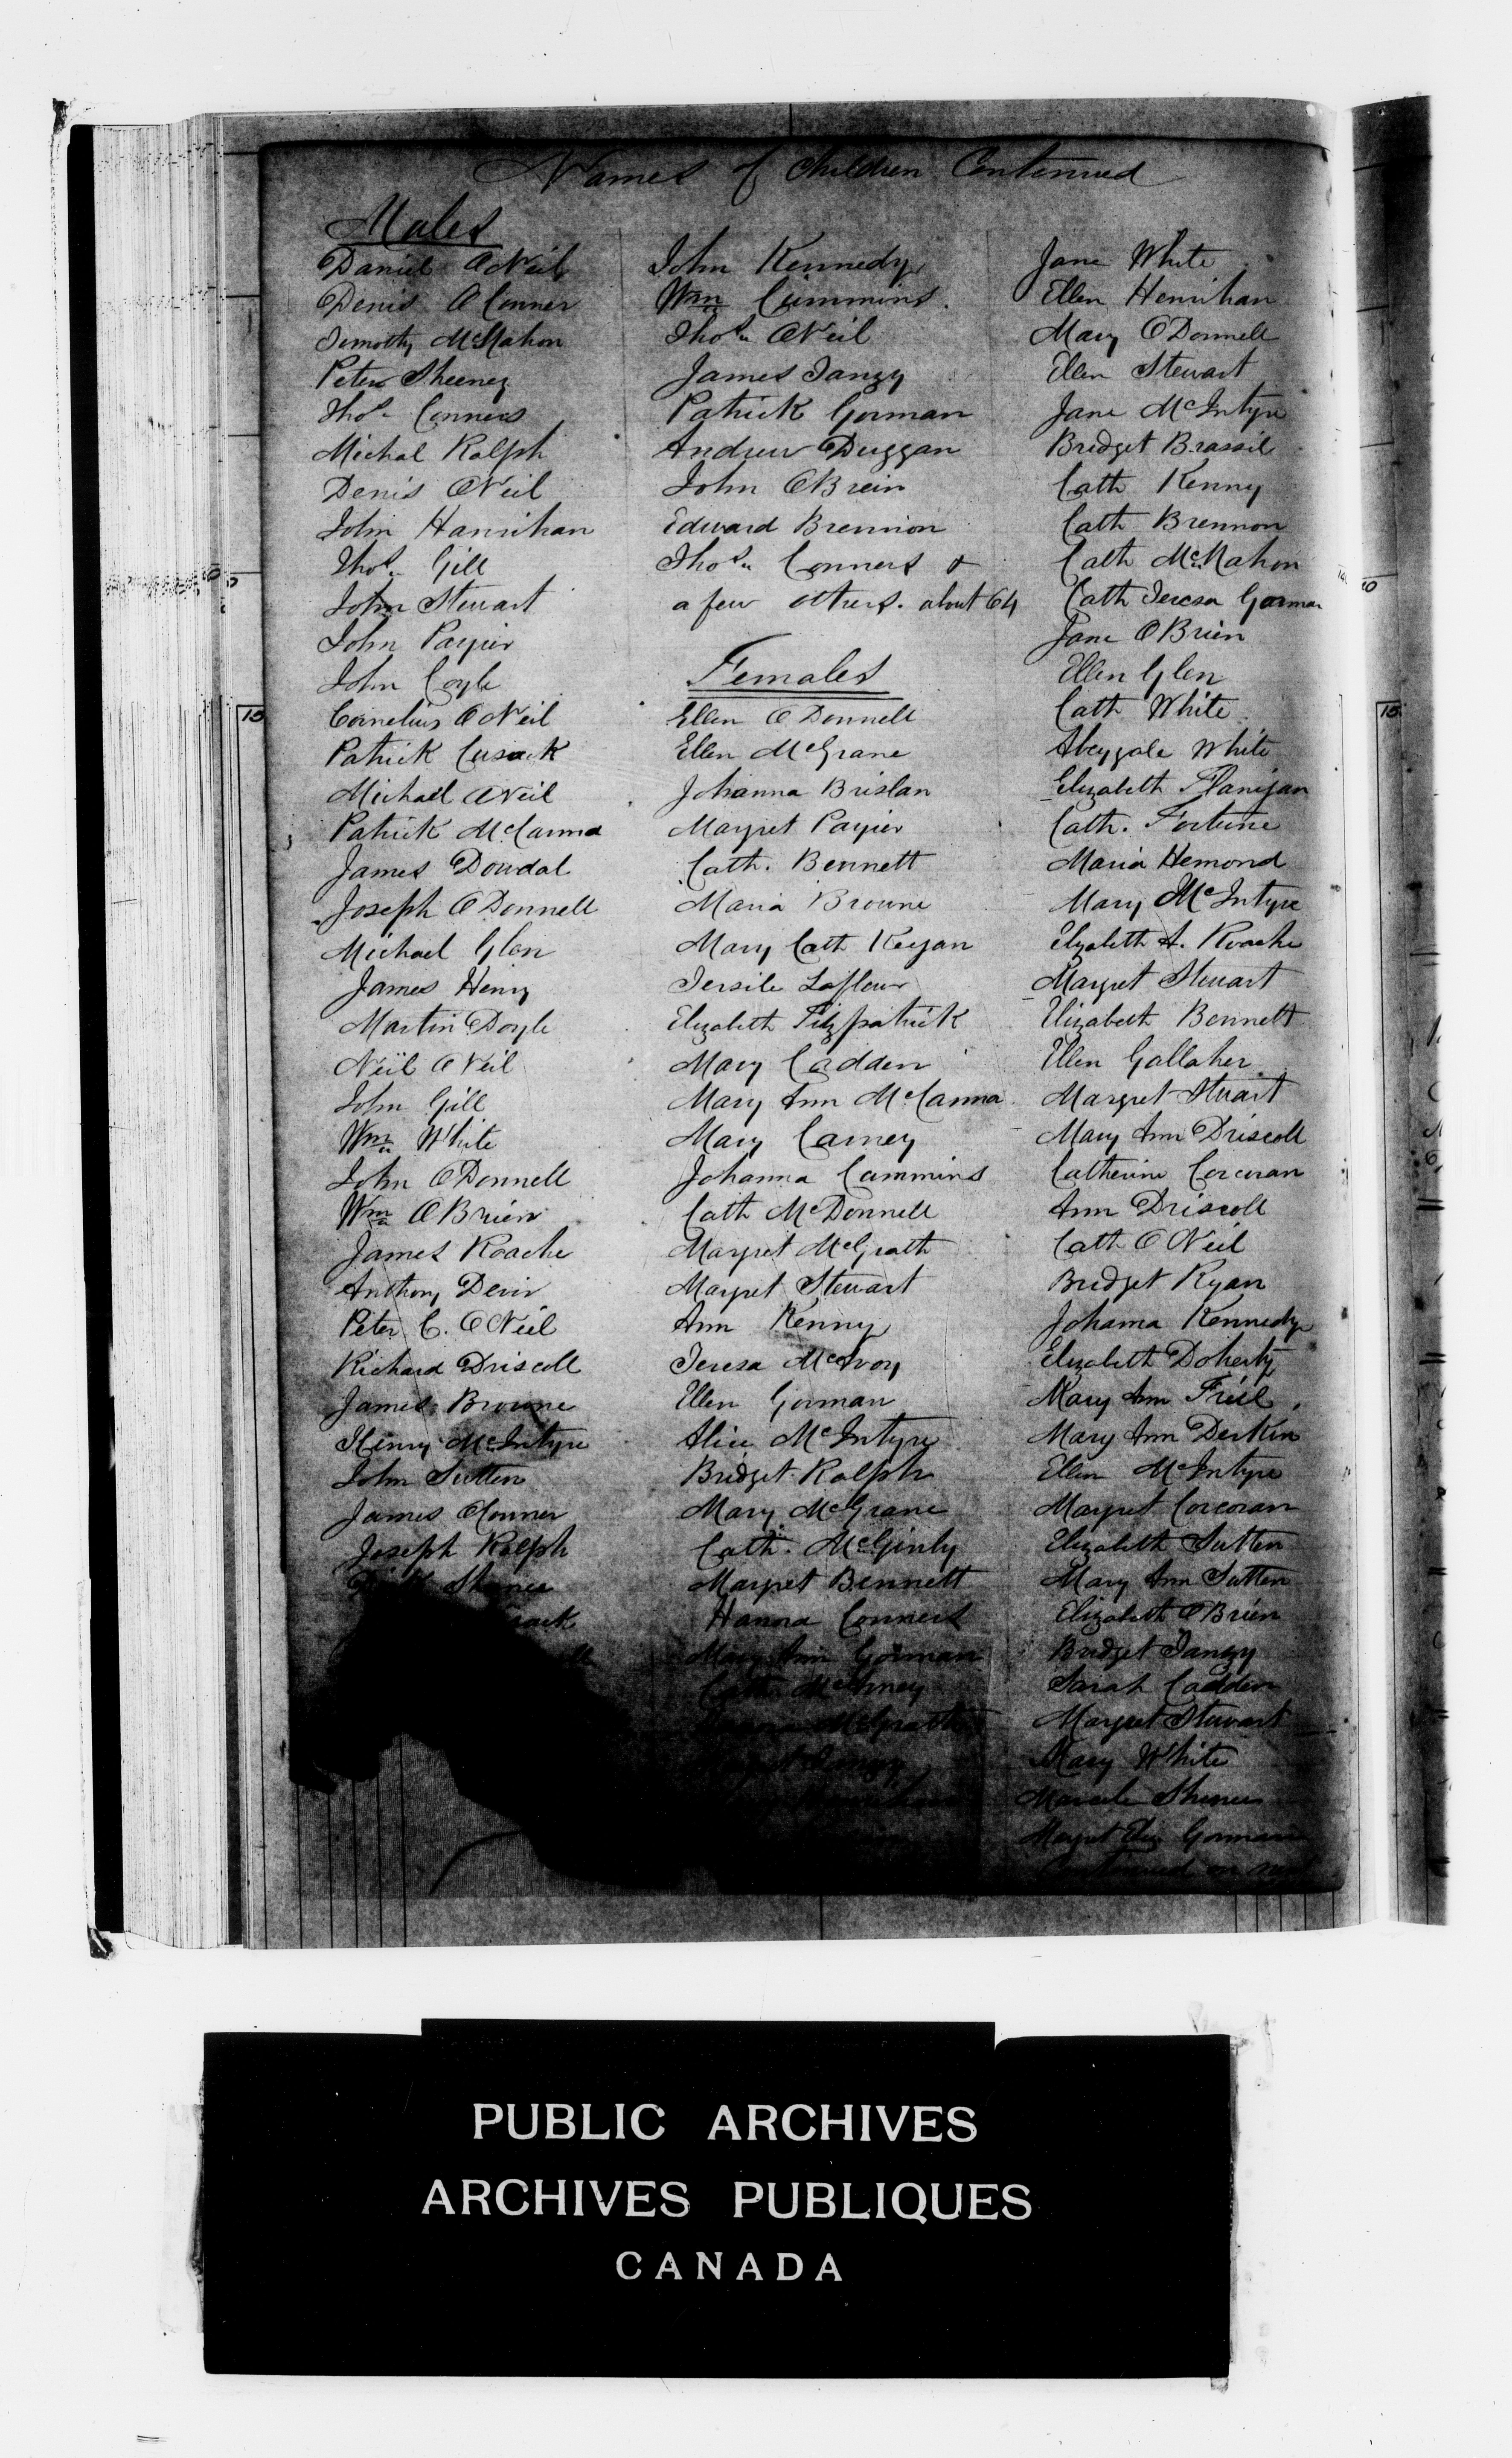 Names of Children Continued
Males
Daniel O'Neil
Denis O Conner
Temothy McMahon
Peter Sheeney
Thos Conners
Michal Ralph
Denis O'Neil
John Hanrihan
Thos Gill
John Stewart
John Payier
John Coyle
Cornelius O Neil
Patrick Cusack
Michael O'Neil
Patrick McCanna
James Dowdal
Joseph O Donnell
Michael Glen
James Henry
Martin Doyle
Neil O Neil
John Gill
Wm White
John O Donnell
Wm O Brien
James Roache
Anthony Devir
Peter C. O'Neil
Richard Driscoll
James Browne
Henry McIntyre
John Sutten
James O'Conner
Joseph Ralph
John Kennedy
Wm Cummins
Thos O'Neil
James Tangy
Patrick Gorman
Andrew Duggan
John O'Brein
Edward Brennon
Thos Conners &
a few others. about 64
Females
Ellen O Donnell
Ellen McGrane
Johanna Brislan
Margret Payier
Cath. Bennett
Maria Browne
Mary Cath Keegan
Tersile Lafleur
Elizabeth Fitzpatrick
Mary Cadden
Mary Ann McCanna
Mary Carney
Johanna Cummins
Cath McDonnell
Margret McGrath
Margret Stewart
Ann Kenny
Teresa McEvoy
Ellen Gorman
Alice McIntyre
Bridget Ralph
Mary McGrane
Cath. McGinly
Margret Bennett
Hanora Conners
Mary Ann Gorman
McGrath
Jane White
Ellen Henrihan
Mary O Donnell
Ellen Stewart
Jane McIntyre
Bridget Brassil
Cath Kenny
Cath Brennon
Cath McMahon
Cath Teresa Gorman
Jane O Brien
Ellen Glen
Cath White
Abeygale White
Elizabeth Flanigan
Cath. Fortune
Maria Hemond
Mary McIntyre
Elizabeth A. Roache
Margret Stewart
Elizabeth Bennett
Ellen Gallaher
Margret Stuart
Mary Ann Driscoll
Catherine Corcoran
Ann Driscoll
Cath O Neil
Bridget Ryan
Johanna Kennedy
Elizabeth Doherty
Mary Ann Friel
Mary Ann Derkin
Ellen McIntyre
Margret Corcoran
Elizabeth Sutten
Mary Ann Sutten
Elizabeth O'Brien
Bridget Tangy
Sarah Cadden
Margret Stewart
Mary White
Margret Eliz Gorman
15
15
PUBLIC ARCHIVES
ARCHIVES PUBLIQUES
CANADA